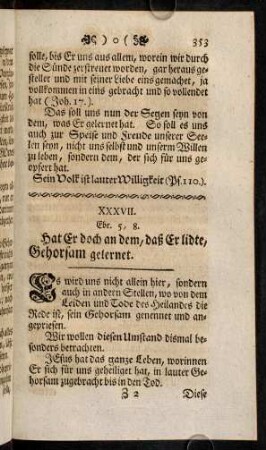 )o( 353
solle, bis Er uns aus allem, worein wir durch
die Sünde zerstreuet worden, gar heraus ge-
stellet und mit seiner Liebe eins gemachet, ja
vollkommen in eins gebracht und so vollendet
hat (Joh. 17.).
Das soll uns nun der Segen seyn von
dem, was Er gelernet hat. So soll es uns
auch zur Speise und Freude unserer See-
len seyn, nicht uns selbst und unserm Willen
zu leben, sondern dem, der sich für uns ge-
opfert hat.
Sein Volk ist lauter Willigkeit (Ps. 110.).
XXXVII.
Ebr. 5, 8.
Hat Er doch an dem, daß Er lidte,
Gehorsam gelernet.
Es wird uns nicht allein hier, sondern
auch in andern Stellen, wo von dem
Leiden und Tode des Heilandes die
Rede ist, sein Gehorsam genennet und an-
gepriesen.
Wir wollen diesen Umstand dismal be-
sonders betrachten.
JEsus hat das ganze Leben, worinnen
Er sich für uns geheiliget hat, in lauter Ge-
horsam zugebracht bis in den Tod.
Z 2 Diese